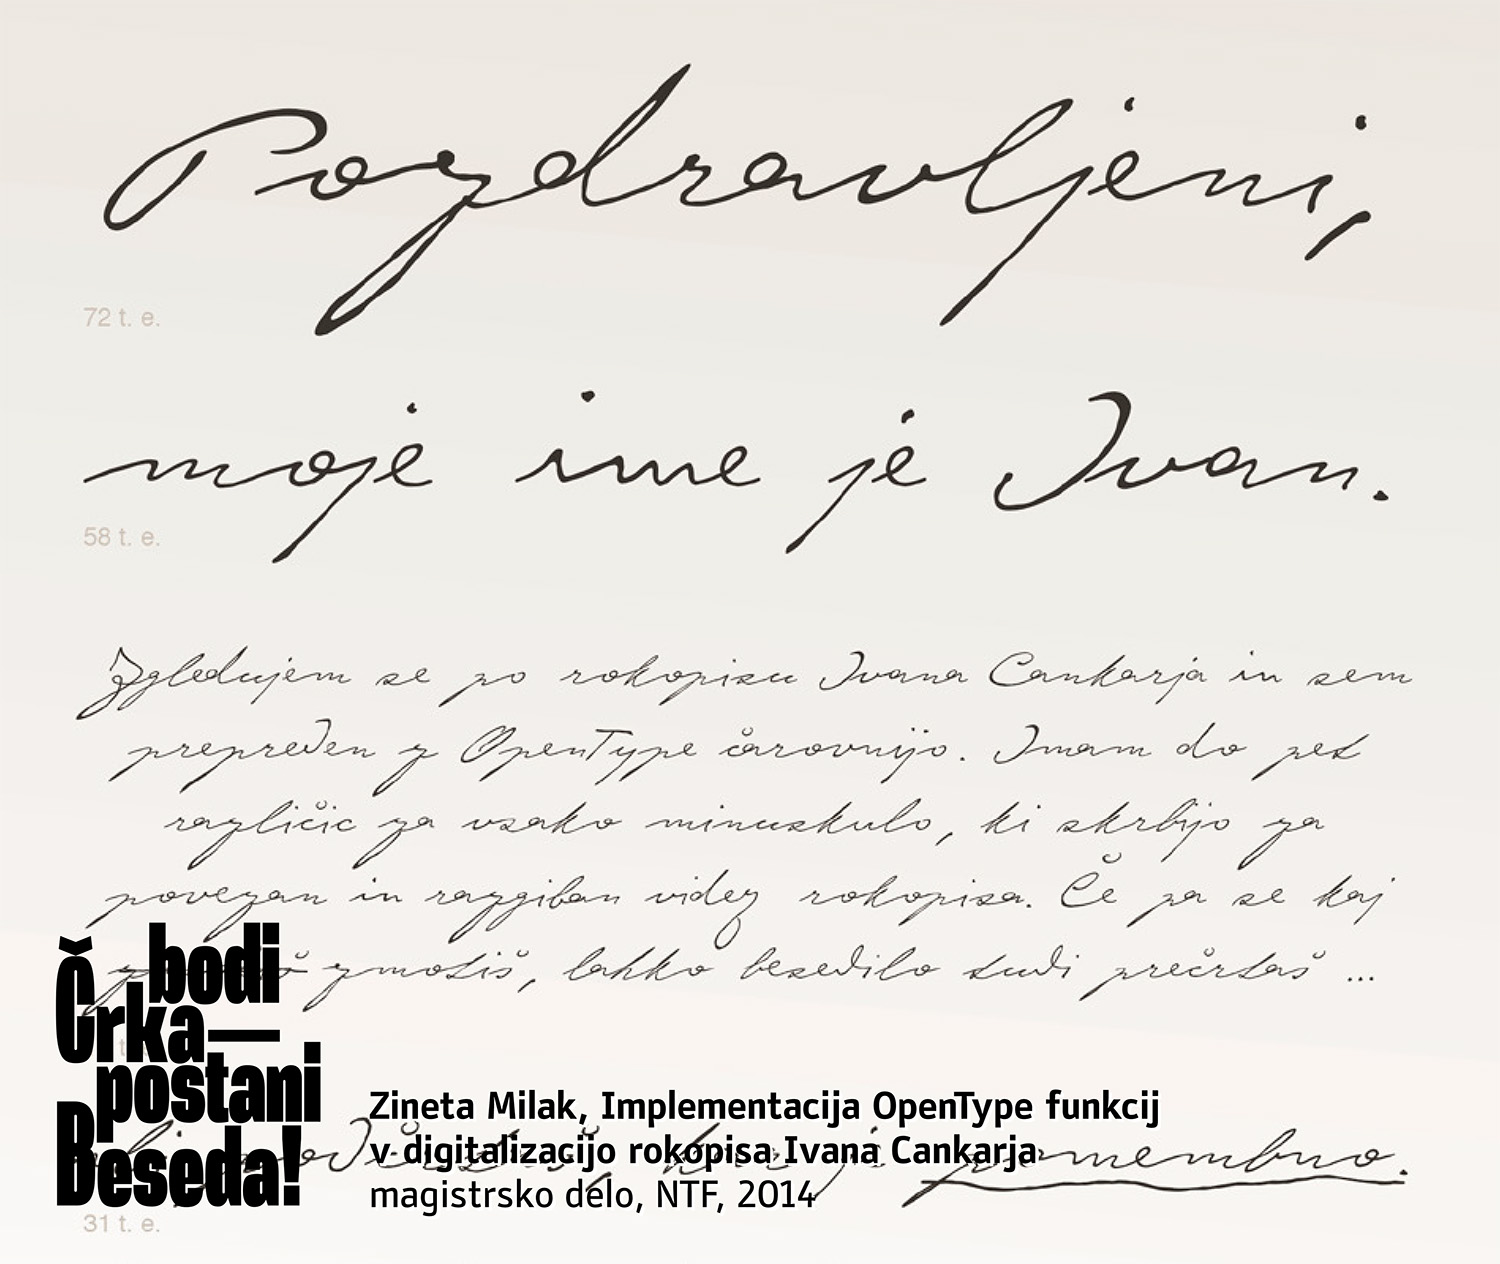 Pozdravljeni,
72 t. e.
moje ime je Ivan.
58 t. e.
Zgledujem se po rokopisu Ivana Cankarja in sem
prepreden z OpenType čarovnijo. Imam do pet
različic za vsako minuskulo, ki skrbijo za
povezan in razgiban videz rokopisa. Če pa se kaj
zmotiš, lahko besedilo tudi prečrtaš ...
bodi
Črka—
postani
Beseda!
pomembno.
Zineta Milak, Implementacija OpenType funkcij
v digitalizacijo rokopisa Ivana Cankarja
magistrsko delo, NTF, 2014
31 t. e.